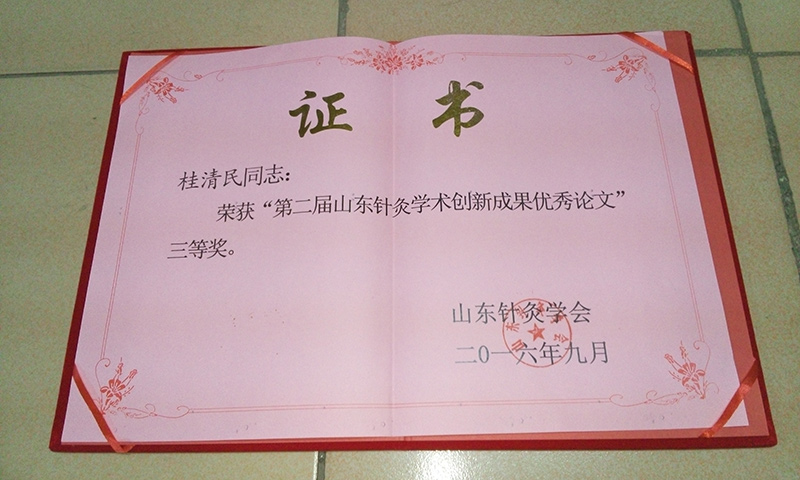 证书
桂清民同志：
荣获“第二届山东针灸学术创新成果优秀论文”
三等奖。
山东针灸学会
二0一六年九月